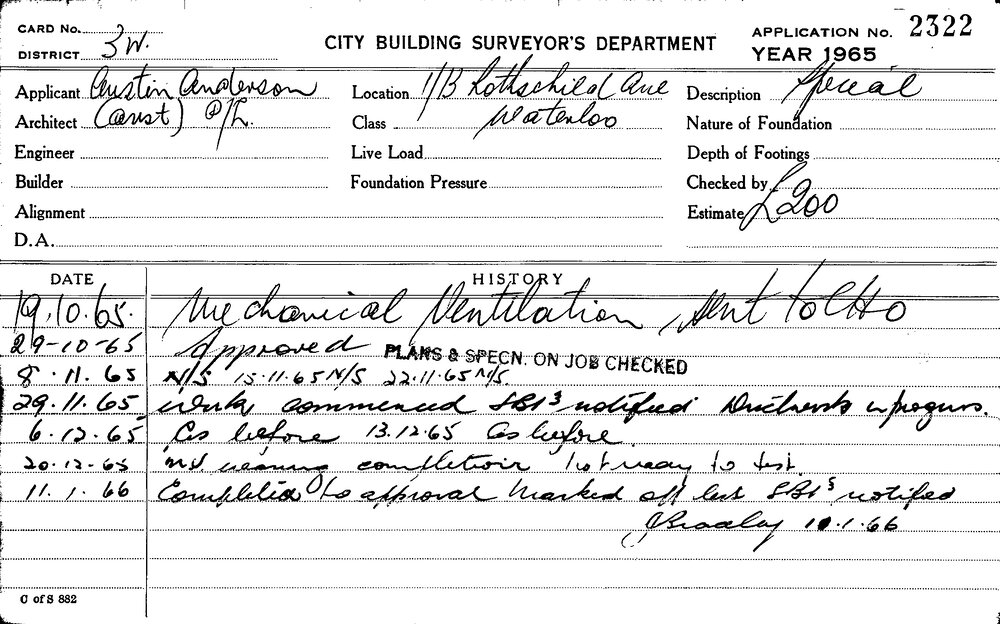 CARD No.
DISTRICT 3W.
CITY BUILDING SURVEYOR'S DEPARTMENT
APPLICATION No. 2322
YEAR 1965
Applicant Austin Anderson
Location 1/13 Rothschild Ave
Description Special
Architect (Aust) P/L.
Class Waterloo
Nature of Foundation
Engineer
Live Load
Depth of Footings
Builder
Foundation Pressure
Checked by
Alignment
Estimate £200
D.A.
DATE HISTORY
19.10.65. Mechanical Ventilation, Sent to CHO
29-10-65 Approved PLANS & SPECN. ON JOB CHECKED
8.11.65 N/S 15.11.65 N/S 22.11.65 N/S.
29.11.65 Work commenced notified Ductwork in progress.
6.12.65 As before 13.12.65 As before.
20.12.65 nearing completion not ready to test.
11.1.66 Completed to approval marked off notified
10.1.66
C of S 882